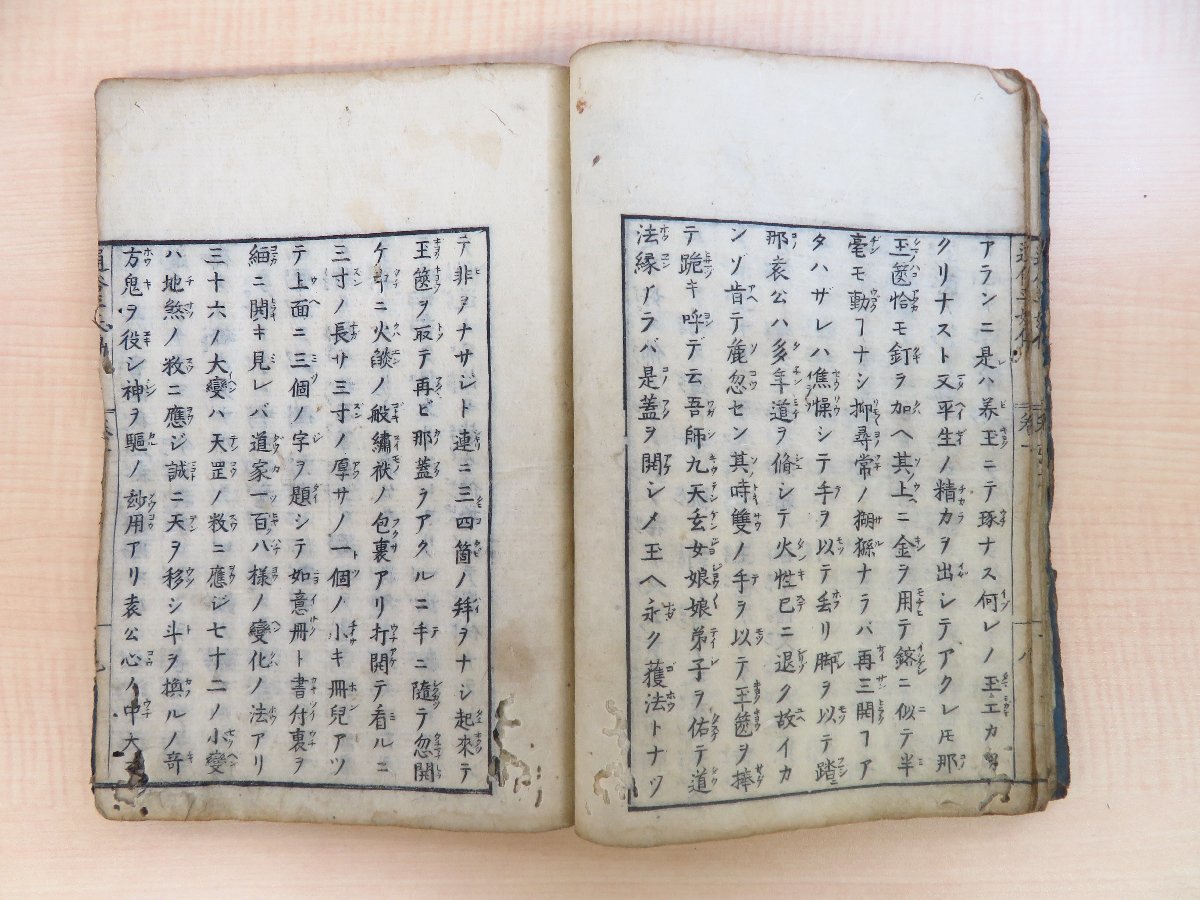 アランニ是ハ养王ニテ琢ナス何レノ玉工カ
クリナスト又平生ノ精カヲ出シテアクレ𪜈那
玉篋恰モ釘ヲ加ヘ其上ニ金ヲ用テ鎔ニ似テ半
毫モ動ヿナシ抑尋常ノ猢猻ナラバ再三開ヿア
タハザレハ憔懆シテ手ヲ以テ丢リ脚ヲ以テ踏
那袁公ハ多年道ヲ脩シテ火性已ニ退ク故イカ
ンゾ肯テ麁忽セン其時雙ノ手ヲ以テ玉篋ヲ捧
テ跪キ呼デ云吾師九天玄女娘娘弟子ヲ佑テ道
法縁アラバ是蓋ヲ開シメ玉ヘ永ク護法トナツ
テ非ヲナサジト連ニ三四箇ノ拜ヲナシ起來テ
玉篋ヲ取テ再ビ那蓋ヲアクルニ手ニ隨テ忽開
ケ中ニ火燄ノ般繡袱ノ包裹アリ打開テ看ルニ
三寸ノ長サ三寸ノ厚サノ一個ノ小キ冊兒アツ
テ上面ニ三個ノ字ヲ題シテ如意冊ト書付裏ヲ
細ニ開キ見レバ道家一百八様ノ變化ノ法アリ
三十六ノ大變ハ天罡ノ數ニ應ジ七十二ノ小變
ハ地煞ノ数ニ應ジ誠ニ天ヲ移シ斗ヲ換ルノ奇
方鬼ヲ役シ神ヲ驅ノ妙用アリ袁公心ノ中大